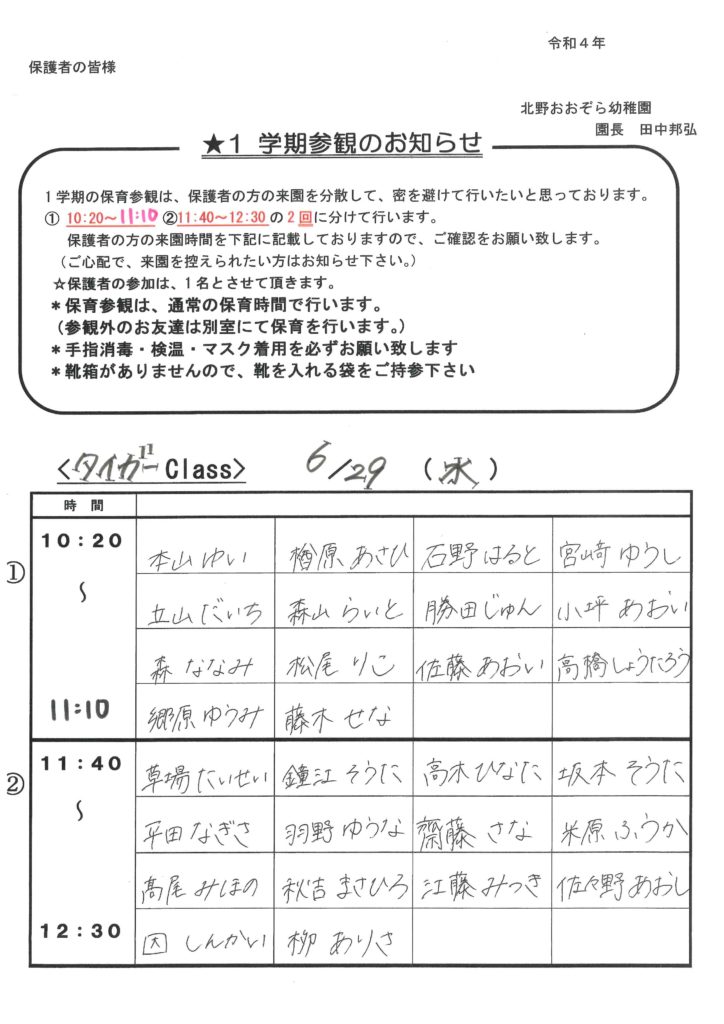 令和４年
保護者の皆様
北野おおぞら幼稚園
園長　田中邦弘
★１ 学期参観のお知らせ
１学期の保育参観は、保護者の方の来園を分散して、密を避けて行いたいと思っております。
① 10:20～11:10 ②11:40～12:30 の２回に分けて行います。
保護者の方の来園時間を下記に記載しておりますので、ご確認をお願い致します。
（ご心配で、来園を控えられたい方はお知らせ下さい。）
☆保護者の参加は、１名とさせて頂きます。
＊保育参観は、通常の保育時間で行います。
（参観外のお友達は別室にて保育を行います。）
＊手指消毒・検温・マスク着用を必ずお願い致します
＊靴箱がありませんので、靴を入れる袋をご持参下さい
<タイガーClass>　6/29（水）
時　間
① 10：20 ～ 11:10
本山 ゆい　楢原 あさひ　石野 はると　宮﨑 ゆうし
立山 だいち　森山 らいと　勝田 じゅん　小坪 あおい
森 ななみ　松尾 りこ　佐藤 あおい　高橋 しょうたろう
郷原 ゆうみ　藤木 せな
② 11：40 ～ 12：30
草場 たいせい　鐘江 そうた　高木 ひなた　坂本 そうた
平田 なぎさ　羽野 ゆうな　齋藤 さな　米原 ふうか
髙尾 みほの　秋吉 まさひろ　江藤 みつき　佐々野 あおし
因 しんかい　柳 ありさ